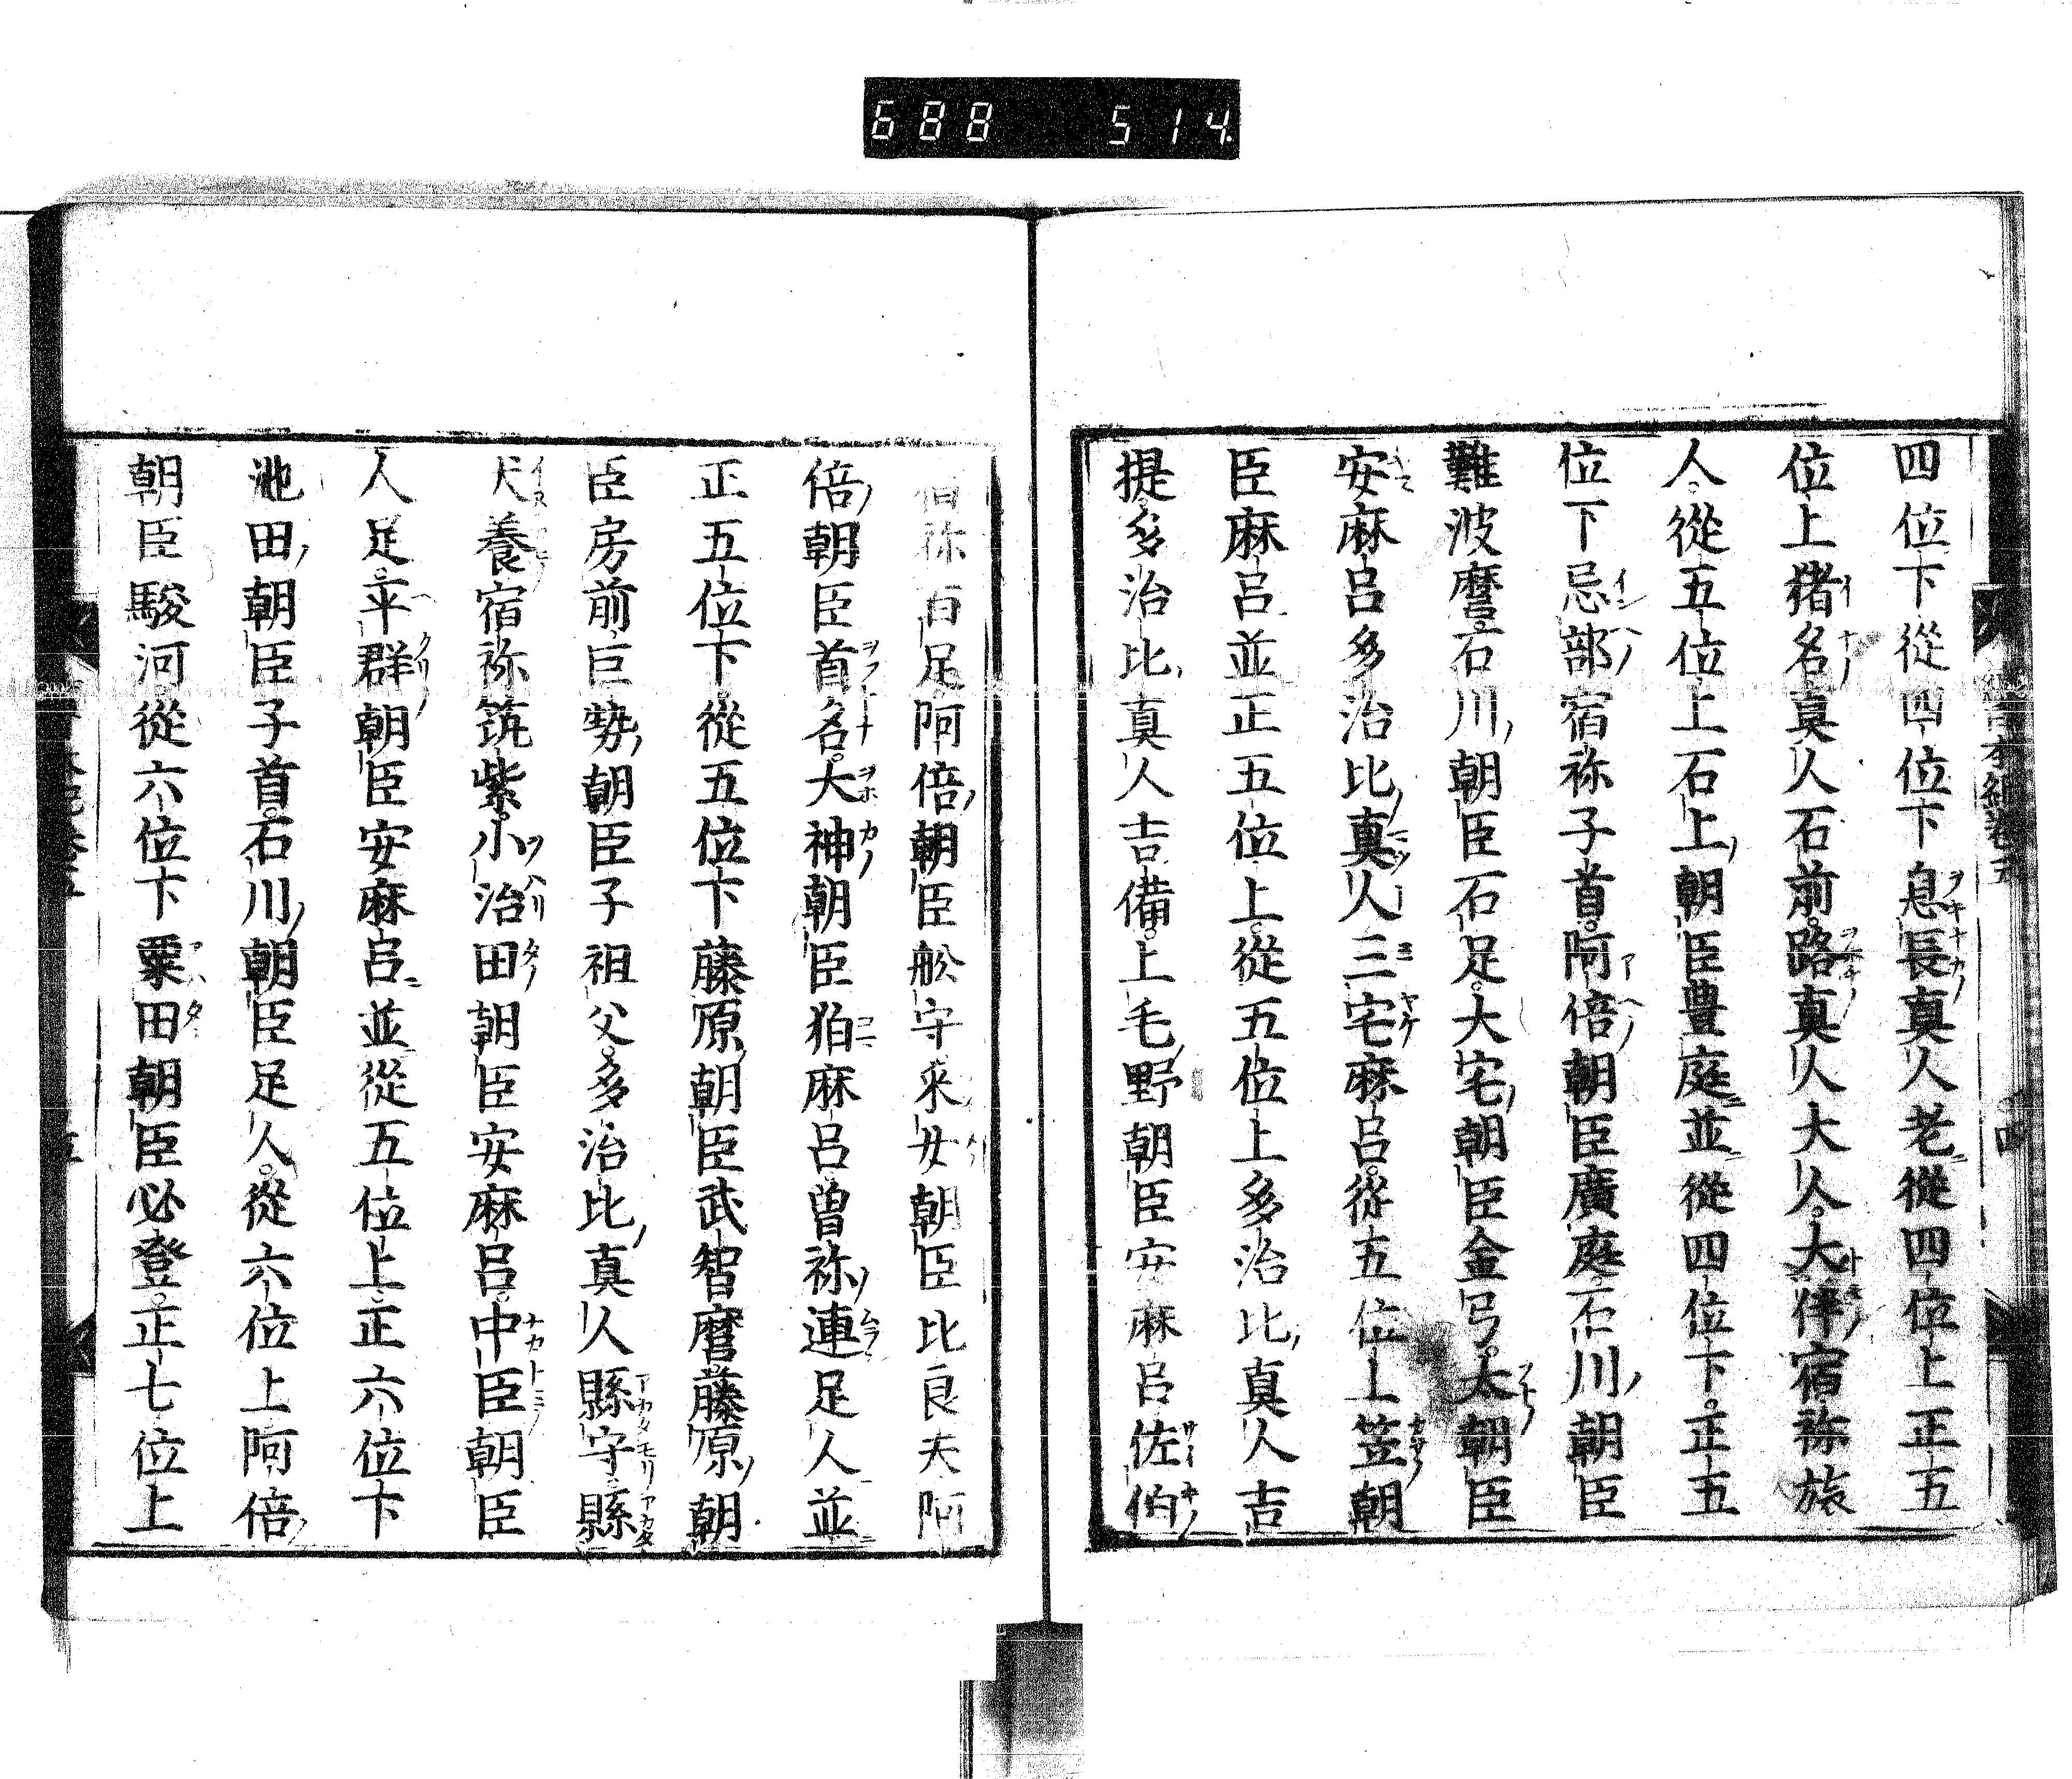 688 514
四位下從四位下息長真人老從四位上正五
位上猪名真人石前路真人大人大伴宿祢旅
人從五位上石上朝臣豊庭並從四位下正五
位下忌部宿祢子首阿倍朝臣廣庭石川朝臣
難波麿石川朝臣石足大宅朝臣金弓太朝臣
安麻呂多治比真人三宅麻呂從五位上笠朝
臣麻呂並正五位上從五位上多治比真人吉
提多治比真人吉備上毛野朝臣安麻呂佐伯
宿祢百足阿倍朝臣船守采女朝臣比良夫阿
倍朝臣首名大神朝臣狛麻呂曽祢連足人並
正五位下從五位下藤原朝臣武智麿藤原朝
臣房前巨勢朝臣子祖父多治比真人縣守縣
犬養宿祢筑紫小治田朝臣安麻呂中臣朝臣
人足平群朝臣安麻呂並從五位上正六位下
池田朝臣子首石川朝臣足人從六位上阿倍
朝臣駿河從六位下粟田朝臣必登正七位上